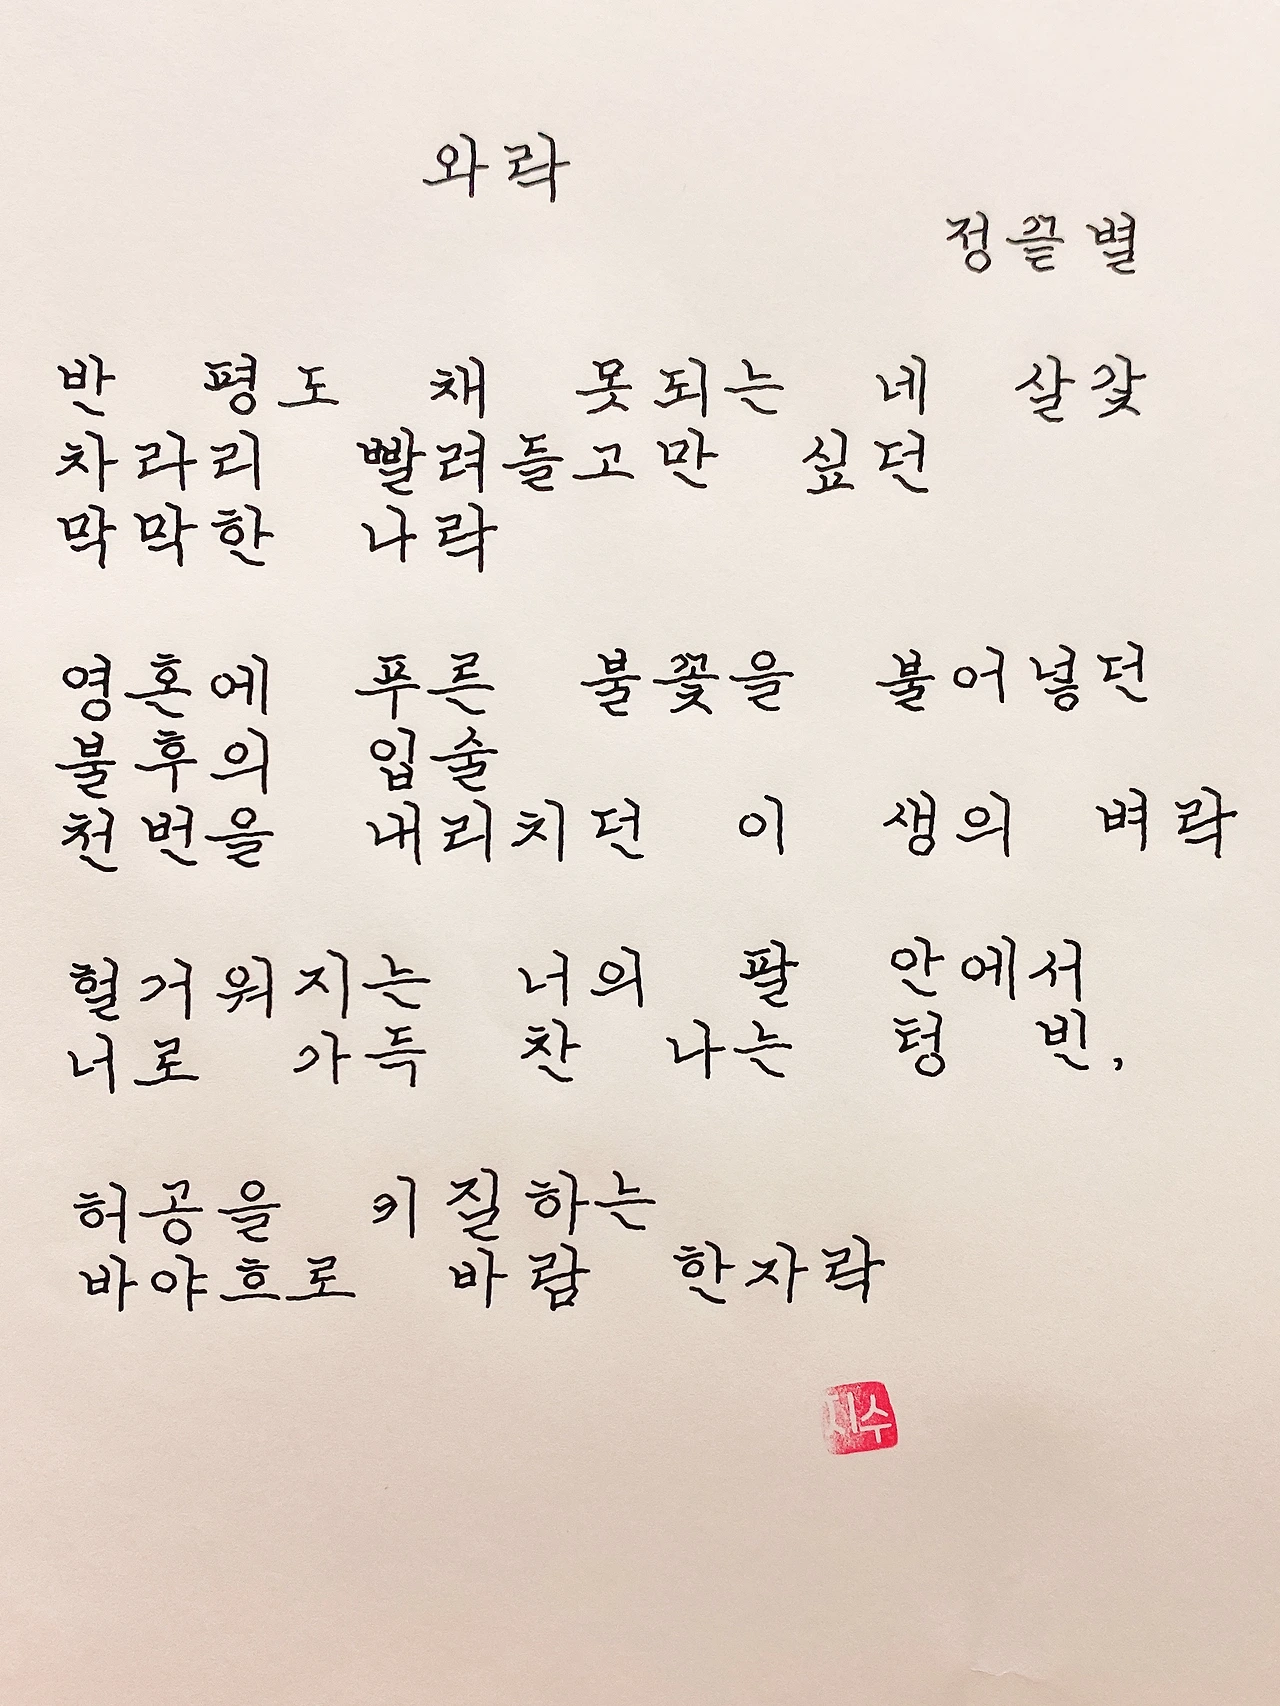 와락
정끝별
반 평도 채 못되는 네 살갗
차라리 빨려들고만 싶던
막막한 나락
영혼에 푸른 불꽃을 불어넣던
불후의 입술
천번을 내리치던 이 생의 벼락
헐거워지는 너의 팔 안에서
너로 가득 찬 나는 텅 빈,
허공을 키질하는
바야흐로 바람 한자락
지수